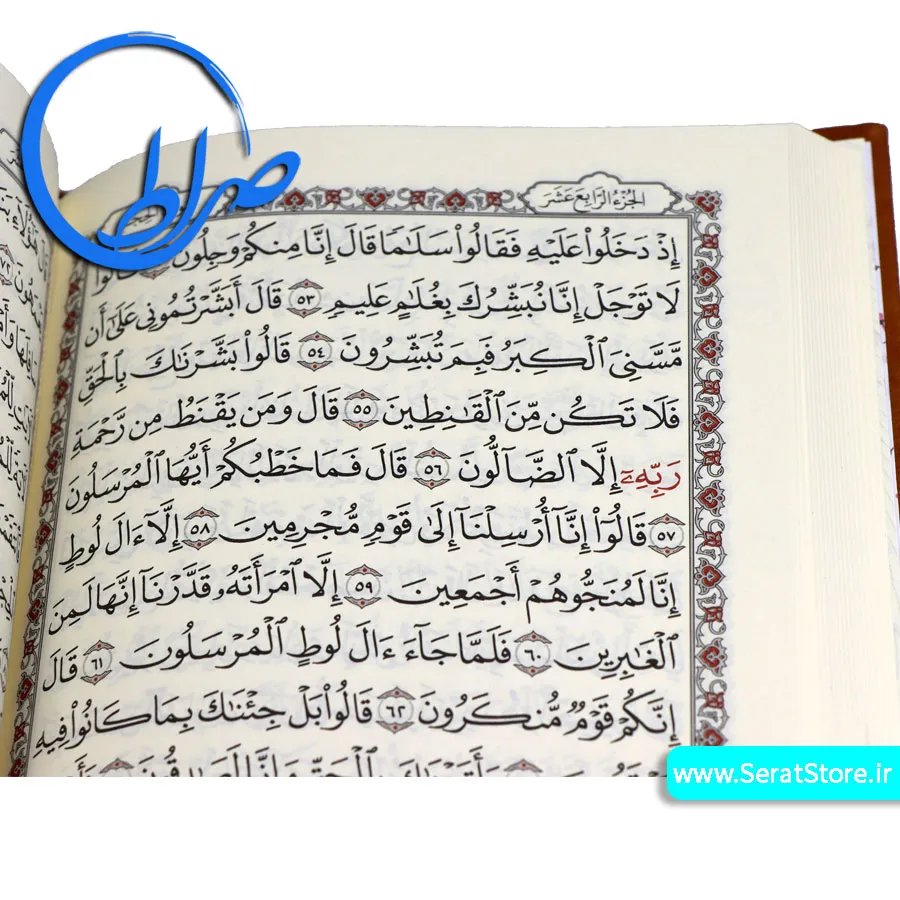 صراط
الجُزْءُ الرَّابِعَ عَشَرَ
إِذْ دَخَلُوا۟ عَلَيْهِ فَقَالُوا۟ سَلَـٰمًا قَالَ إِنَّا مِنكُمْ وَجِلُونَ
لَا تَوْجَلْ إِنَّا نُبَشِّرُكَ بِغُلَـٰمٍ عَلِيمٍ ٥٣ قَالَ أَبَشَّرْتُمُونِي عَلَىٰٓ أَن
مَّسَّنِىَ ٱلْكِبَرُ فَبِمَ تُبَشِّرُونَ ٥٤ قَالُوا۟ بَشَّرْنَـٰكَ بِٱلْحَقِّ
فَلَا تَكُن مِّنَ ٱلْقَـٰنِطِينَ ٥٥ قَالَ وَمَن يَقْنَطُ مِن رَّحْمَةِ
رَبِّهِۦٓ إِلَّا ٱلضَّآلُّونَ ٥٦ قَالَ فَمَا خَطْبُكُمْ أَيُّهَا ٱلْمُرْسَلُونَ
٥٧ قَالُوٓا۟ إِنَّآ أُرْسِلْنَآ إِلَىٰ قَوْمٍ مُّجْرِمِينَ ٥٨ إِلَّآ ءَالَ لُوطٍ
إِنَّا لَمُنَجُّوهُمْ أَجْمَعِينَ ٥٩ إِلَّا ٱمْرَأَتَهُۥ قَدَّرْنَآ إِنَّهَا لَمِنَ
ٱلْغَـٰبِرِينَ ٦٠ فَلَمَّا جَآءَ ءَالَ لُوطٍ ٱلْمُرْسَلُونَ ٦١ قَالَ
إِنَّكُمْ قَوْمٌ مُّنكَرُونَ ٦٢ قَالُوا۟ بَلْ جِئْنَـٰكَ بِمَا كَانُوا۟ فِيهِ
www.SeratStore.ir